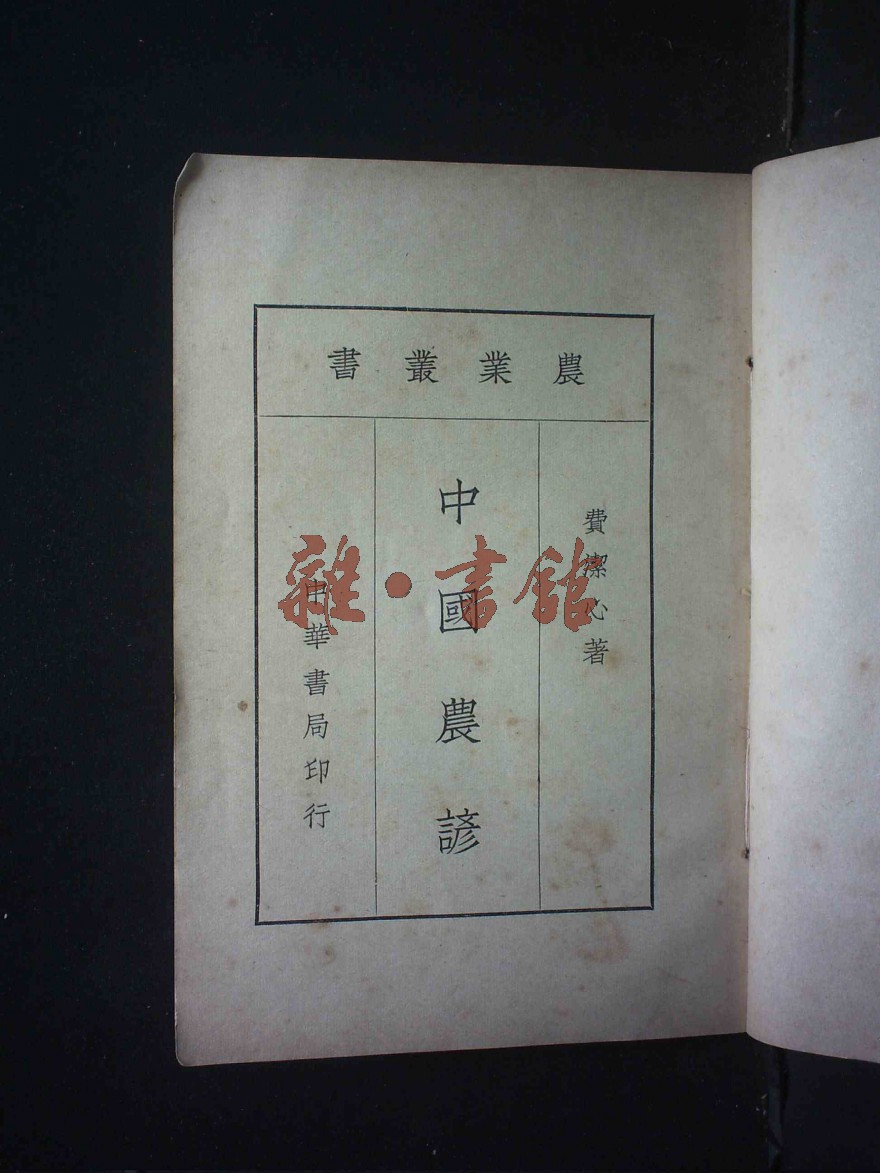 農業叢書
費潔心著
中國農諺
中華書局印行
雜·書館